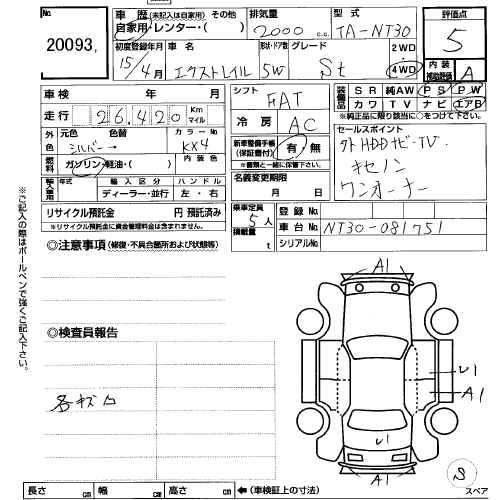 No. 20093,
車歴 (未記入は自家用) その他 排気量 型式 評価点
自家用・レンター・( ) 2000 c.c. TA-NT30 5
初度登録年月 車名 形状・ドア数 グレード 2WD 内装
15/4月 エクストレイル 5W St 4WD 補助評価 A
車検 年 月 シフト FAT 装備品 SR 純AW PS PW
走行 26,420 Km マイル 冷房 AC カワ TV ナビ エアB
※純正品に限り(該当に)○をつけて下さい。
外色 元色 色替 カラーNo. 新車整備手帳 (保証書付) 有・無 セールスポイント
シルバー→ KX4 ※書類と一緒に保管下さい。 外HDDナビ・TV
燃料 ガソリン・軽油・( ) 内装色 名義変更期限 キセノン
輸入車用 年式 輸入区分 ハンドル 月 日 ワンオーナー
ディーラー・並行 左・右
リサイクル預託金 円 預託済み 乗車定員 5人 登録No.
※リサイクル預託金に資金管理料金は含まれません。 積載量 t 車台No. NT30-081751
◎注意事項 (修復・不具合箇所および状態等) シリアルNo.
※ご記入の際はボールペンで強くご記入下さい。
A1
◎検査員報告
U1
A1
各キズ凹
U1
A1
S
長さ cm 幅 cm 高さ cm ←(車検証上の寸法) スペア